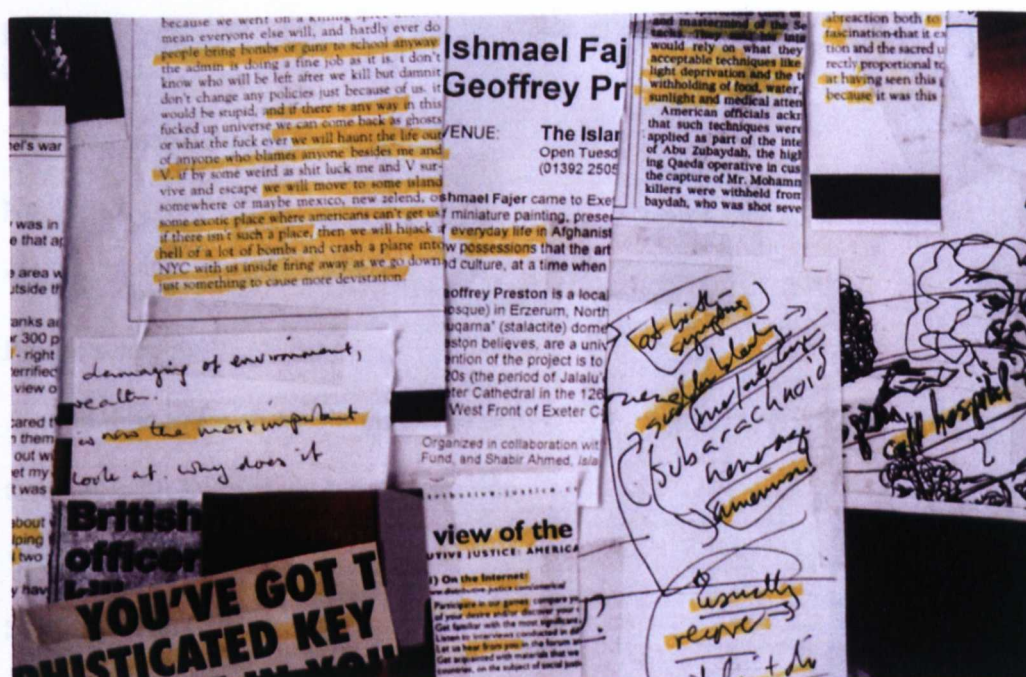 because we went on a killing
mean everyone else will, and hardly ever do
people bring bombs or guns to school anyway
the admin is doing a fine job as it is. i don't
know who will be left after we kill but damnit
don't change any policies just because of us. it
would be stupid, and if there is any way in this
fucked up universe we can come back as ghosts
or what the fuck over we will haunt the life out
of anyone who blames anyone besides me and
V. if by some weird as shit luck me and V sur-
vive and escape we will move to some island
somewhere or maybe mexico, new zelend, or
some exotic place where americans can't get us
if there isn't such a place, then we will hijack a
hell of a lot of bombs and crash a plane into
NYC with us inside firing away as we go down
just something to cause more devistation.
Ishmael Faj
Geoffrey Pr
VENUE: The Islan
Open Tuesd
(01392 2505
shmael Fajer came to Exe
f miniature painting, prese
f everyday life in Afghanist
w possessions that the art
d culture, at a time when
eoffrey Preston is a local
osque) in Erzerum, North
uqarna" (stalactite) dome
eston believes, are a univ
ention of the project is to
20s (the period of Jalalu'
ter Cathedral in the 126
West Front of Exeter C
Organized in collaboration wit
Fund, and Shabir Ahmed, Isla
and mastermind of the Se
tacks. They
would rely on what they
acceptable techniques like
light deprivation and the t
withholding of food, water,
sunlight and medical atten
American officials ackn
that such techniques were
applied as part of the inte
of Abu Zubaydah, the high
ing Qaeda operative in cus
the capture of Mr. Mohamm
killers were withheld from
baydah, who was shot seve
abreaction both to
fascination that it ex
tion and the sacred u
rectly proportional to
at having seen this
because it was this
el's war
was in
e that ap
area w
utside th
anks an
r 300 p
- right
terrified
view o
cared t
them
out w
et my
t was
about
ping
two
y hav
damaging of environment,
wealth.
is now the most important
look at. why does it
British
officer
YOU'VE GOT T
PHISTICATED KEY
IN YOU
view of the
UTIVE JUSTICE: AMERICA
) On the Internet:
www.distributive-justice.com/america/
Participate in our games: compare yo
of your desire and/or discover your
Get familiar with the most significant
Listen to interviews conducted in di
Let us hear from you in the forum an
Get acquainted with materials that we
countries, on the subject of social justi
at birth
symptoms
subarachnoid
call hospital
?
Usually
recover